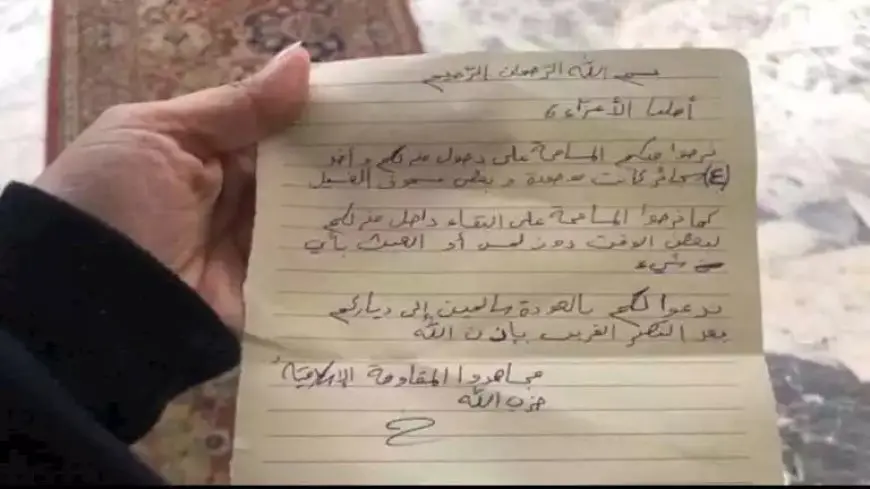 بسم الله الرحمان الرحيم
أهلنا الأعزاء،
نرجوا منكم المسامحة على دخول منزلكم وأخذ
(٤) سجائر كانت موجودة و بعض مسحوق الغسيل
كما نرجوا المسامحة على البقاء داخل منزلكم
لبعض الوقت دون لمس أو العبث بأي
شيء
ندعوا لكم بالعودة سالمين إلى دياركم
بعد النصر القريب بإذن الله
مجاهدوا المقاومة الإسلامية
حزب الله